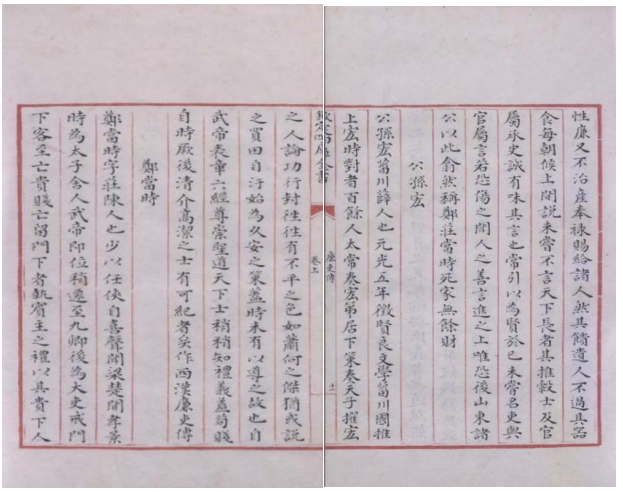 性廉又不治產奉祿賜給諸人然其餽遺人不過具器
食每朝候上間說未嘗不言天下長者其推轂士及官
屬丞史誠有味其言也常引以為賢於已未嘗名吏與
官屬言若恐傷之聞人之善言進之上唯恐後山東諸
公以此翕然稱鄭莊當時死家無餘財
公孫宏
公孫宏菑川薛人也元光五年徵賢良文學菑川國推
上宏時對者百餘人太常奏宏第居下策奏天子擢宏
欽定四庫全書
廉吏傳
卷上
之人論功行封往往有不平之色如蕭何之傑猶或說
之買田自汙始為久安之策蓋時未有以導之故也自
武帝表章六經尊崇聖道天下士稍稍知禮義羞苟賤
自時厥後清介高潔之士有可紀者矣作西漢廉吏傳
鄭當時
鄭當時字莊陳人也少以任俠自喜聲聞梁楚間孝景
時為太子舍人武帝即位稍遷至九卿後為大吏戒門
下客至亡貴賤亡留門下者執賓主之禮以其貴下人